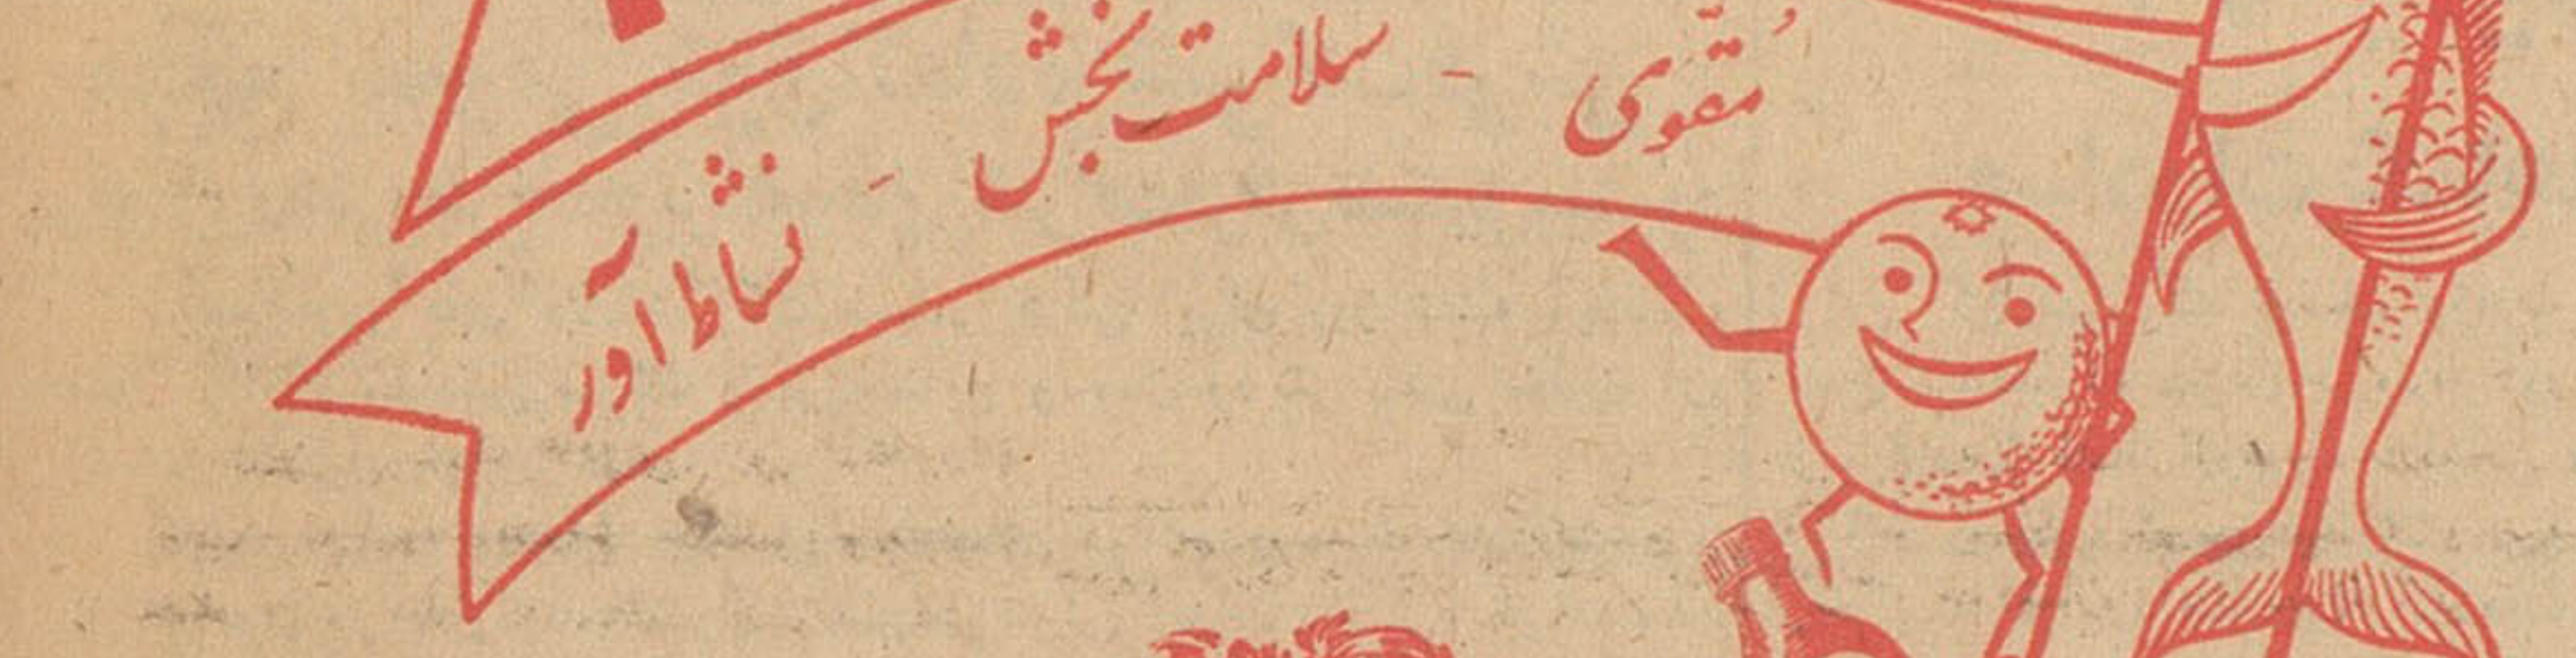 مُقوّی - سلامت بخش - نشاط آور